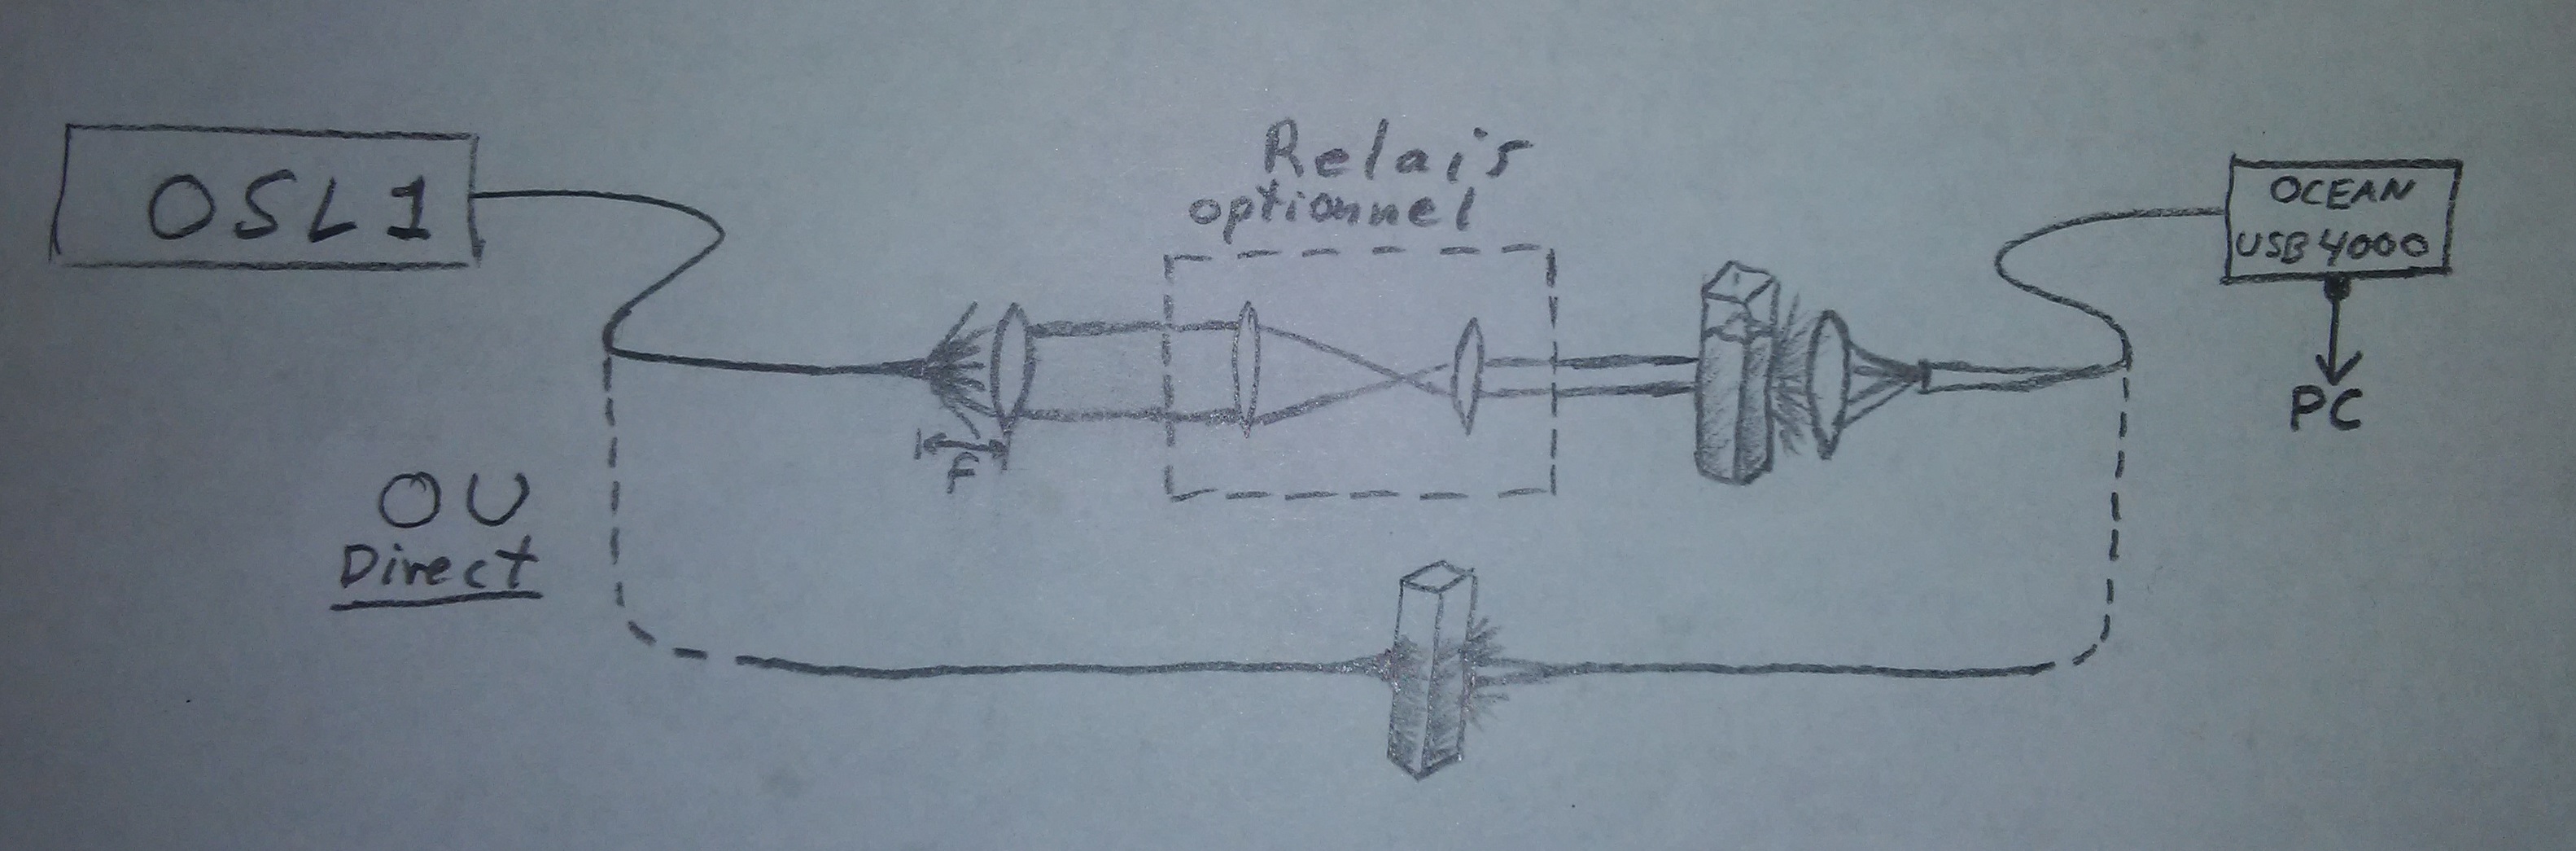 OSL1
Relais
optionnel
OCEAN
USB4000
PC
F
OU
Direct